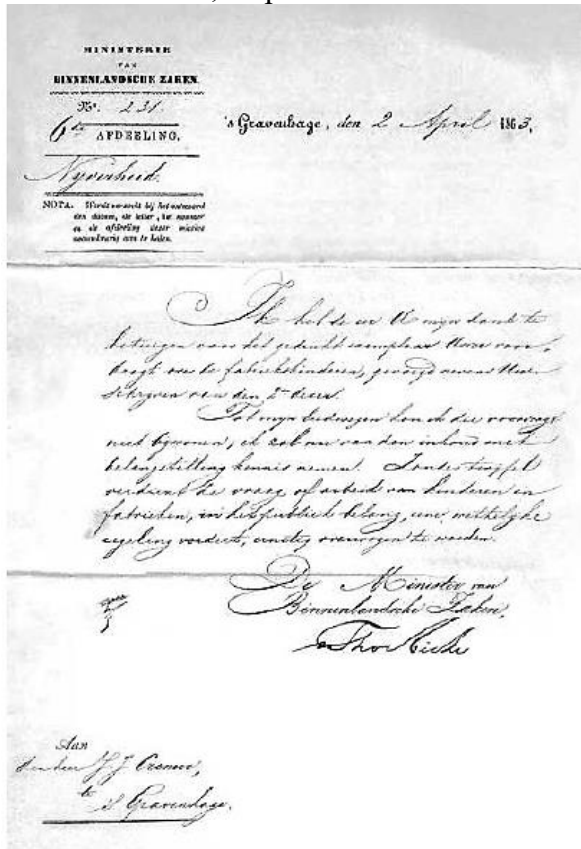 MINISTERIE
VAN
BINNENLANDSCHE ZAKEN.
No. 231.
6de AFDEELING.
Nyverheid.
NOTA. Wordt verzocht bij het antwoord
den datum, de letter, het nummer
en de afdeeling dezer missive
naauwkeurig aan te halen.
's Gravenhage, den 2 April 1863.
Ik heb de eer U mijn dank te
betuigen voor het gedrukt exemplaar Uwer voor-
dragt over de fabriekskinderen, gevoegd nevens Uw
schrijven van den 2n dezer.
Tot mijn leedwezen kon ik die voordragt
niet bijwonen, ik zal nu van den inhoud met
belangstelling kennis nemen. Zonder twijffel
verdient de vraag of arbeid van kinderen in
fabrieken, in het publiek belang, eene wettelijke
regeling vordert, ernstig overwogen te worden.
De Minister van
Binnenlandsche Zaken,
Thorbecke
Aan
den heer J J Cremer,
te
's Gravenhage.